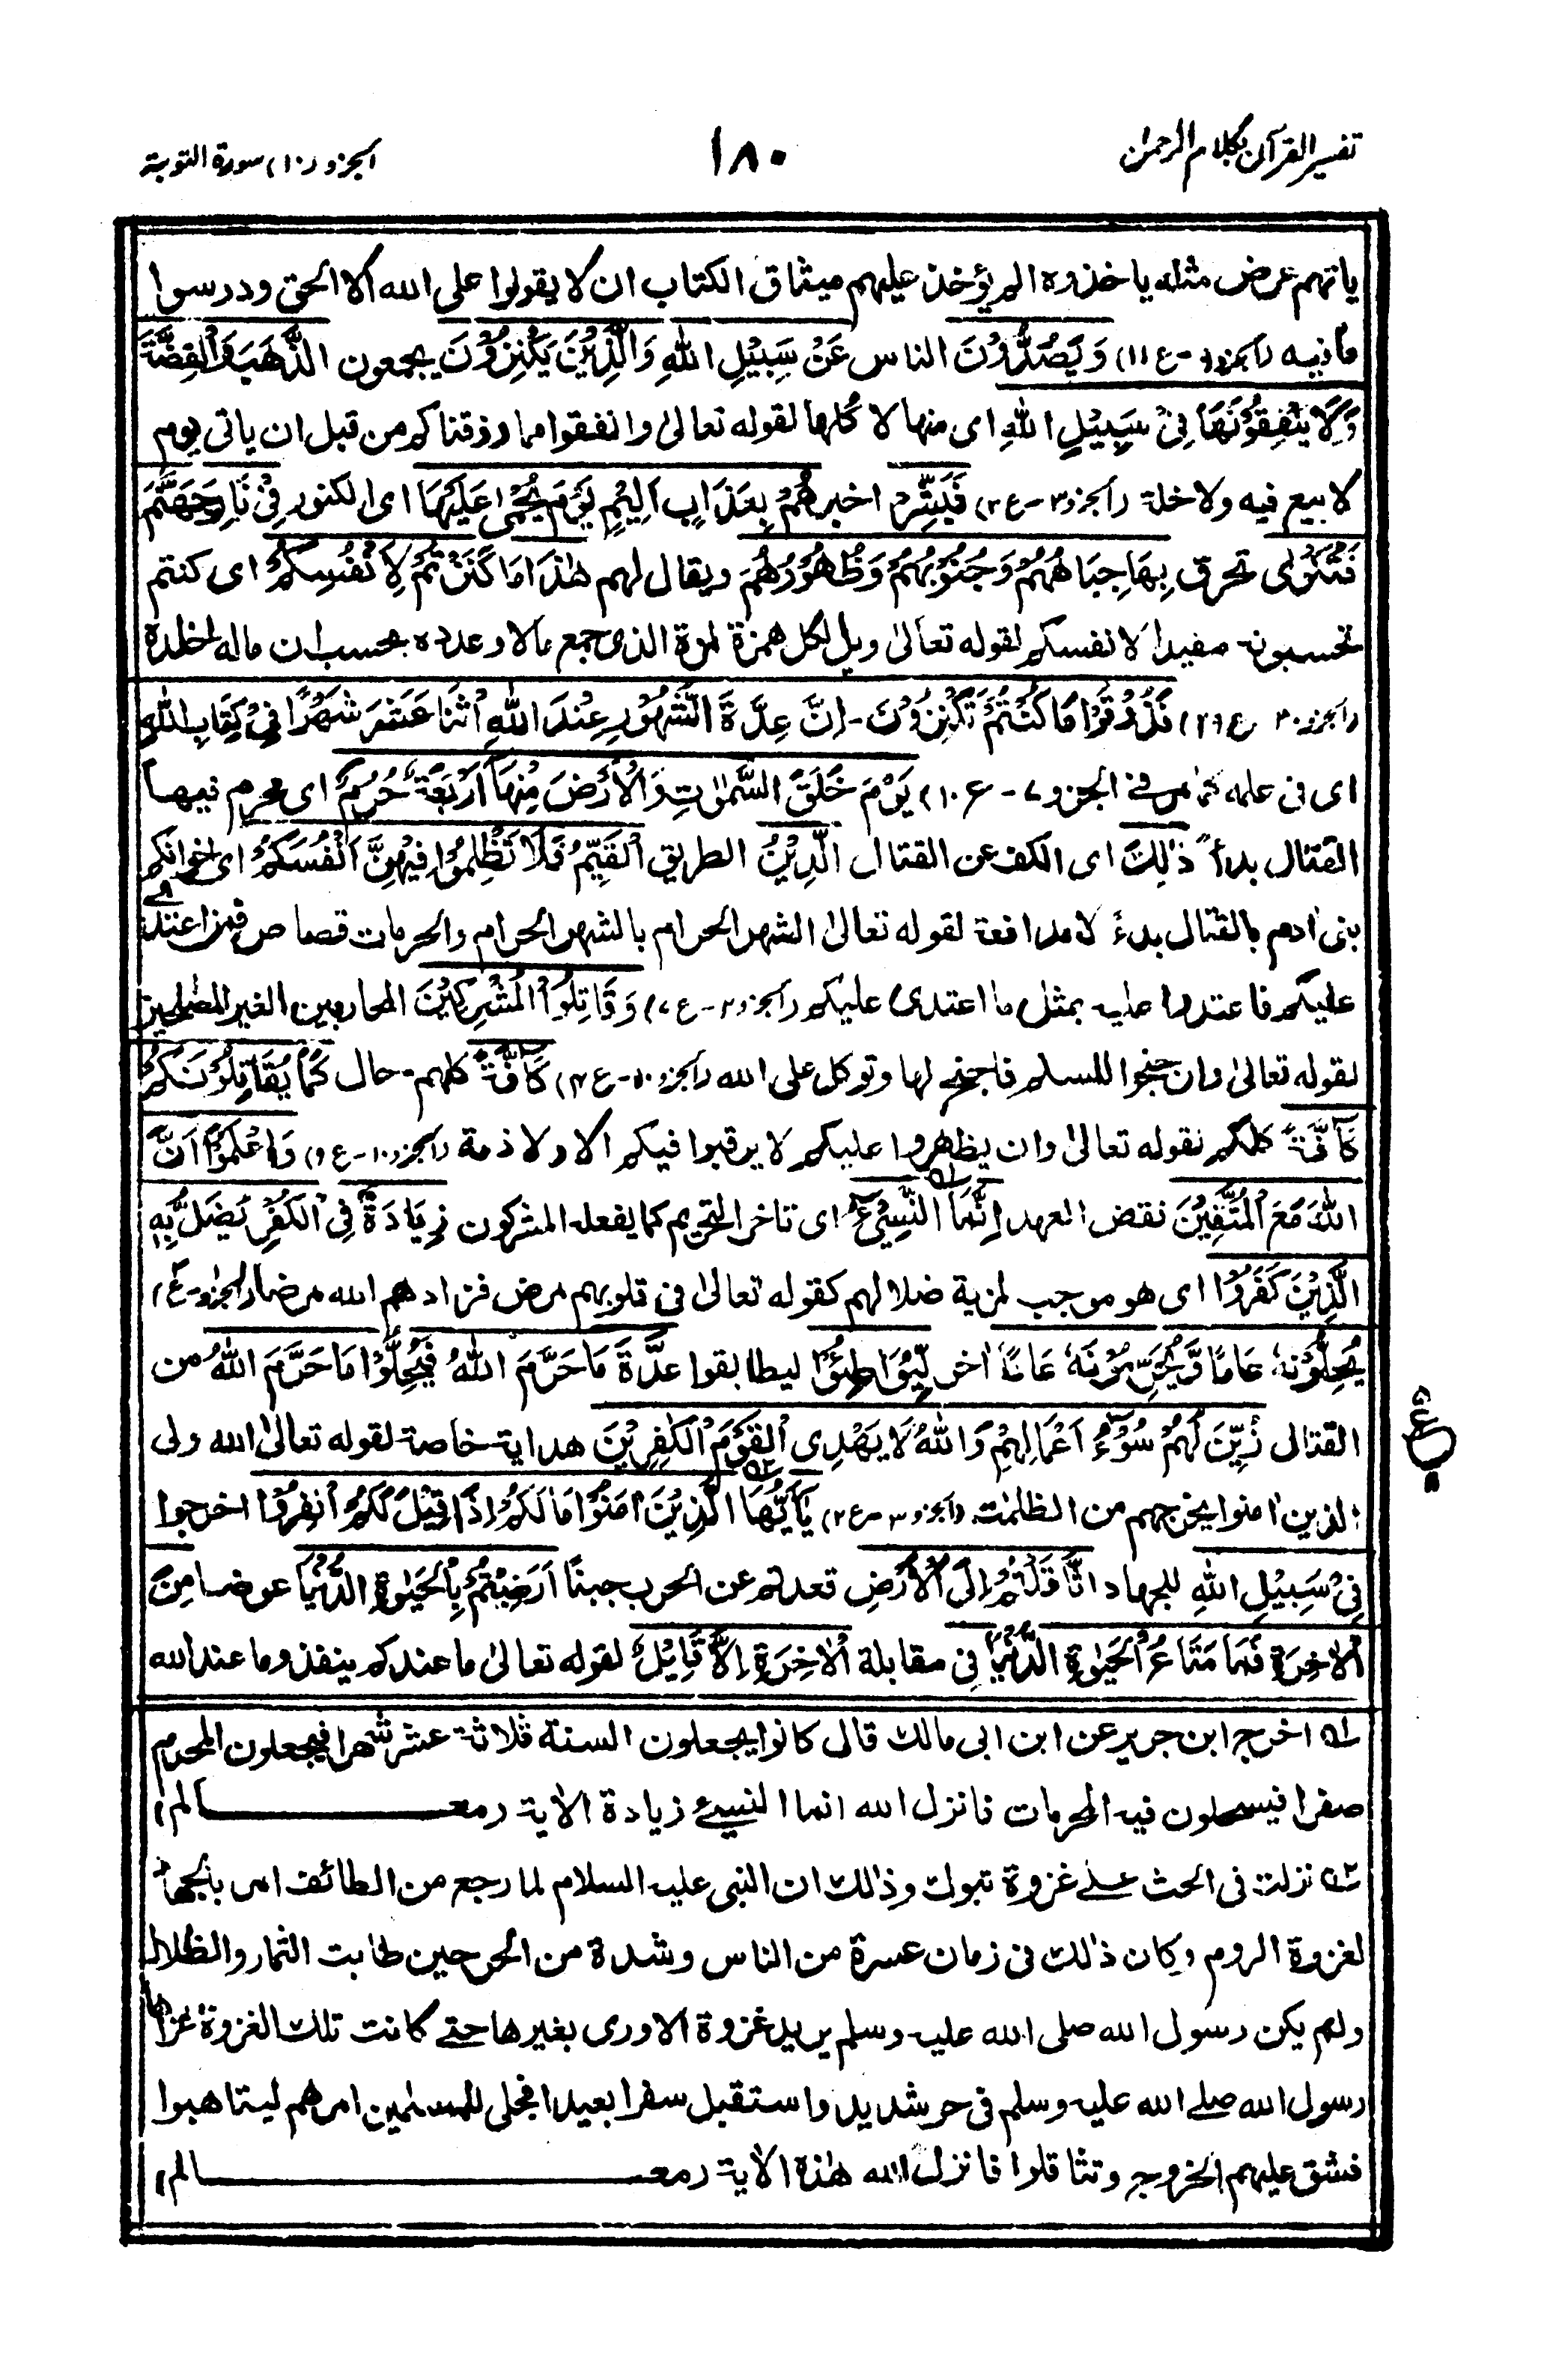 تفسير القرآن بكلام الرحمن
١٨٠
الجزو (١٠) سورة التوبة
ياتهم عرض مثله ياخذوه الم يؤخذ عليهم ميثاق الكتاب ان لا يقولوا على الله الا الحق ودرسوا
ما فيه (الجزو ٩ - ع ١١) وَيَصُدُّوْنَ الناس عَنْ سَبِيْلِ اللهِ وَالَّذِيْنَ يَكْنِزُوْنَ يجمعون الذَّهَبَ وَالْفِضَّةَ
وَلَا يُنْفِقُوْنَهَا فِيْ سَبِيْلِ اللهِ اى منها لا كلها لقوله تعالىٰ وانفقوا مما رزقناكم من قبل ان ياتى يوم
لا بيع فيه ولا خلة (الجزو ٣ - ع ٢) فَبَشِّرْ اخبر هُمْ بِعَذَابٍ اَلِيْمٍ يَّوْمَ يُحْمٰى عَلَيْهَا اى الكنوز فِيْ نَارِ جَهَنَّمَ
فَتُكْوٰى تحرق بِهَا جِبَاهُهُمْ وَجُنُوْبُهُمْ وَظُهُوْرُهُمْ ويقال لهم هٰذَا مَا كَنَزْتُمْ لِاَنْفُسِكُمْ اى كنتم
تحسبونه مفيدا لانفسكم لقوله تعالىٰ ويل لكل همزة لمزة الذى جمع مالا وعدده يحسب ان ماله اخلده
(الجزو ٣٠ ع ٢٩) فَذُوْقُوْا مَا كُنْتُمْ تَكْنِزُوْنَ - اِنَّ عِدَّةَ الشُّهُوْرِ عِنْدَ اللهِ اثْنَا عَشَرَ شَهْرًا فِيْ كِتٰبِ اللهِ
اى فى علمه كما مر فى الجزو ٧ - ع ١٠) يَوْمَ خَلَقَ السَّمٰوٰتِ وَالْاَرْضَ مِنْهَا اَرْبَعَةٌ حُرُمٌ اى محرم فيها
القتال بدأ ذٰلِكَ اى الكف عن القتال الدِّيْنُ الطريق الْقَيِّمُ فَلَا تَظْلِمُوْا فِيْهِنَّ اَنْفُسَكُمْ اى اخوانكم
بنى اٰدم بالقتال بدءً لا مدافعة لقوله تعالىٰ الشهر الحرام بالشهر الحرام والحرمات قصاص فمن اعتدى
عليكم فاعتدوا عليه بمثل ما اعتدى عليكم (الجزو ٢ - ع ٧) وَقَاتِلُوا الْمُشْرِكِيْنَ المحاربين الغير المصلحين
لقوله تعالىٰ وان جنحوا للسلم فاجنح لها وتوكل على الله (الجزو ١٠ - ع ٣) كَافَّةً كلهم - حال كَمَا يُقَاتِلُوْنَكُمْ
كَافَّةً كلكم لقوله تعالىٰ وان يظهروا عليكم لا يرقبوا فيكم الا ولا ذمة (الجزو ١٠ - ع ٩) وَاعْلَمُوْا اَنَّ
اللهَ مَعَ الْمُتَّقِيْنَ نقض العهد اِنَّمَا النَّسِيْٓءُ اى تاخر التحريم كما يفعله المشركون زِيَادَةٌ فِي الْكُفْرِ يُضَلُّ بِهِ
الَّذِيْنَ كَفَرُوْا اى هو موجب لمزية ضلالهم كقوله تعالىٰ فى قلوبهم مرض فزادهم الله مرضا (الجزو - ع)
يُحِلُّوْنَهٗ عَامًا وَّيُحَرِّمُوْنَهٗ عَامًا اٰخر لِّيُوَاطِئُوْا ليطابقوا عِدَّةَ مَا حَرَّمَ اللهُ فَيُحِلُّوْا مَا حَرَّمَ اللهُ من
القتال زُيِّنَ لَهُمْ سُوْٓءُ اَعْمَالِهِمْ وَاللهُ لَا يَهْدِى الْقَوْمَ الْكٰفِرِيْنَ هداية خاصة لقوله تعالىٰ الله ولى
الذين اٰمنوا يخرجهم من الظلمٰت (الجزو ٣ - ع ٢) يٰٓاَيُّهَا الَّذِيْنَ اٰمَنُوْا مَا لَكُمْ اِذَا قِيْلَ لَكُمُ انْفِرُوْا اخرجوا
فِيْ سَبِيْلِ اللهِ للجهاد اثَّاقَلْتُمْ اِلَى الْاَرْضِ تعدلتم عن الحرب جبنًا اَرَضِيْتُمْ بِالْحَيٰوةِ الدُّنْيَا عوضا مِنَ
الْاٰخِرَةِ فَمَا مَتَاعُ الْحَيٰوةِ الدُّنْيَا فى مقابلة الْاٰخِرَةِ اِلَّا قَلِيْلٌ لقوله تعالىٰ ما عندكم ينفد وما عند الله
ع
ل١ اخرج ابن جرير عن ابن ابى مالك قال كانوا يجعلون السنة ثلاثة عشر شهرا فيجعلون المحرم
صفرا فيستحلون فيه المحرمات فانزل الله انما النسيء زيادة الاٰية (معالم)
ل٢ نزلت فى الحث على غزوة تبوك وذٰلك ان النبى عليه السلام لما رجع من الطائف امر بالجهاد
لغزوة الروم وكان ذٰلك فى زمان عسرة من الناس وشدة من الحر حين طابت الثمار والظلال
ولم يكن رسول الله صلى الله عليه وسلم يريد غزوة الا ورى بغيرها حتى كانت تلك الغزوة غزاها
رسول الله صلے الله عليه وسلم فى حر شديد واستقبل سفرا بعيدا فجلى للمسلمين امرهم ليتاهبوا
فشق عليهم الخروج وتثاقلوا فانزل الله هٰذه الاٰية (معالم)